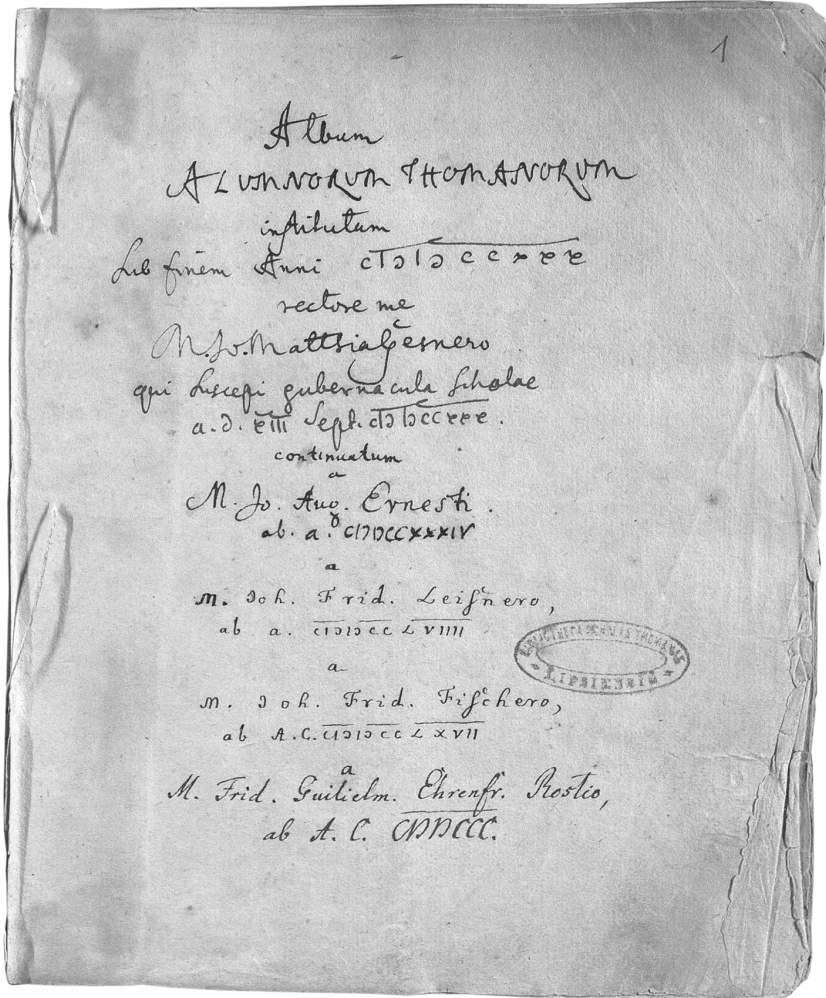 1
Album
ALUMNORUM THOMANORUM
institutum
sub finem Anni CIↃIↃCCXXX
rectore me
M. Jo. Matthia Gesnero
qui suscepi gubernacula scholae
a. d. XIII Sept. CIↃIↃCCXXX.
continuatum
a
M. Jo. Aug. Ernesti.
ab. a. CIↃIↃCCXXXIV
a
M. Joh. Frid. Leisnero,
ab a. CIↃIↃCCLVIIII
a
M. Joh. Frid. Fischero,
ab A.C. CIↃIↃCCLXVII
a
M. Frid. Guilielm. Ehrenfr. Rostio,
ab A. C. CIↃIↃCCC.
BIBLIOTHECA SCHOLAE THOMANAE
LIPSIENSIS